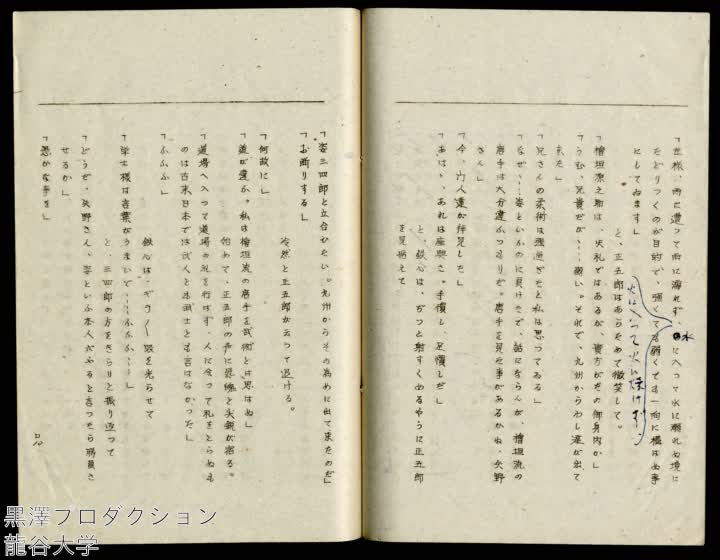 「左様、雨に遭つて雨に濡れず、水に入つて水に溺れぬ境に
たどりつくのが目的で、強くても弱くても一向に構はぬ事
にしてゐます」
と、正五郎はあらためて微笑して。
「檜垣源之助は、失礼ではあるが、貴方がたの御身内か」
「うむ、兄貴だが‥‥弱い。それで、九州からわし達が出て
来た」
「兄さんの柔術は強過ぎたと私は思つてゐる」
「なぜ‥‥姿といふのに負けたで、話にならんが、檜垣流の
唐手は大分違ふつもりだ。唐手を見た事があるかね、矢野
さん」
「今、門人達が拝見した」
「あはゝ、あれは座興さ。手慣し、足慣しだ」
と、鉄心は、ぢつと射すくめるやうに正五郎
を見据えて
火に入つて火に焼けず
「姿三四郎と立合ひたい。九州からその為めに出て来たのだ」
「お断りする」
冷然と正五郎が云つて退ける。
「何故に」
「道が違ふ。私は檜垣流の唐手を武術とは思はぬ」
始めて、正五郎の声に
「道場へ入つて道場の礼を行はず、人に会つて礼をとらぬも
のは古来日本では武人とも武士とも言はなかつた」
「ふふふ」
鉄心は、ギラ〳〵眼を光らせて
「学士様は言葉がうまいで‥‥ふふふ‥‥」
と、三四郎の方をきらりと振り返つて
「どうだ、矢野さん、姿といふ本人がやると言つたら勝負さ
せるか」
「愚かな事を」
黒澤プロダクション
龍谷大学